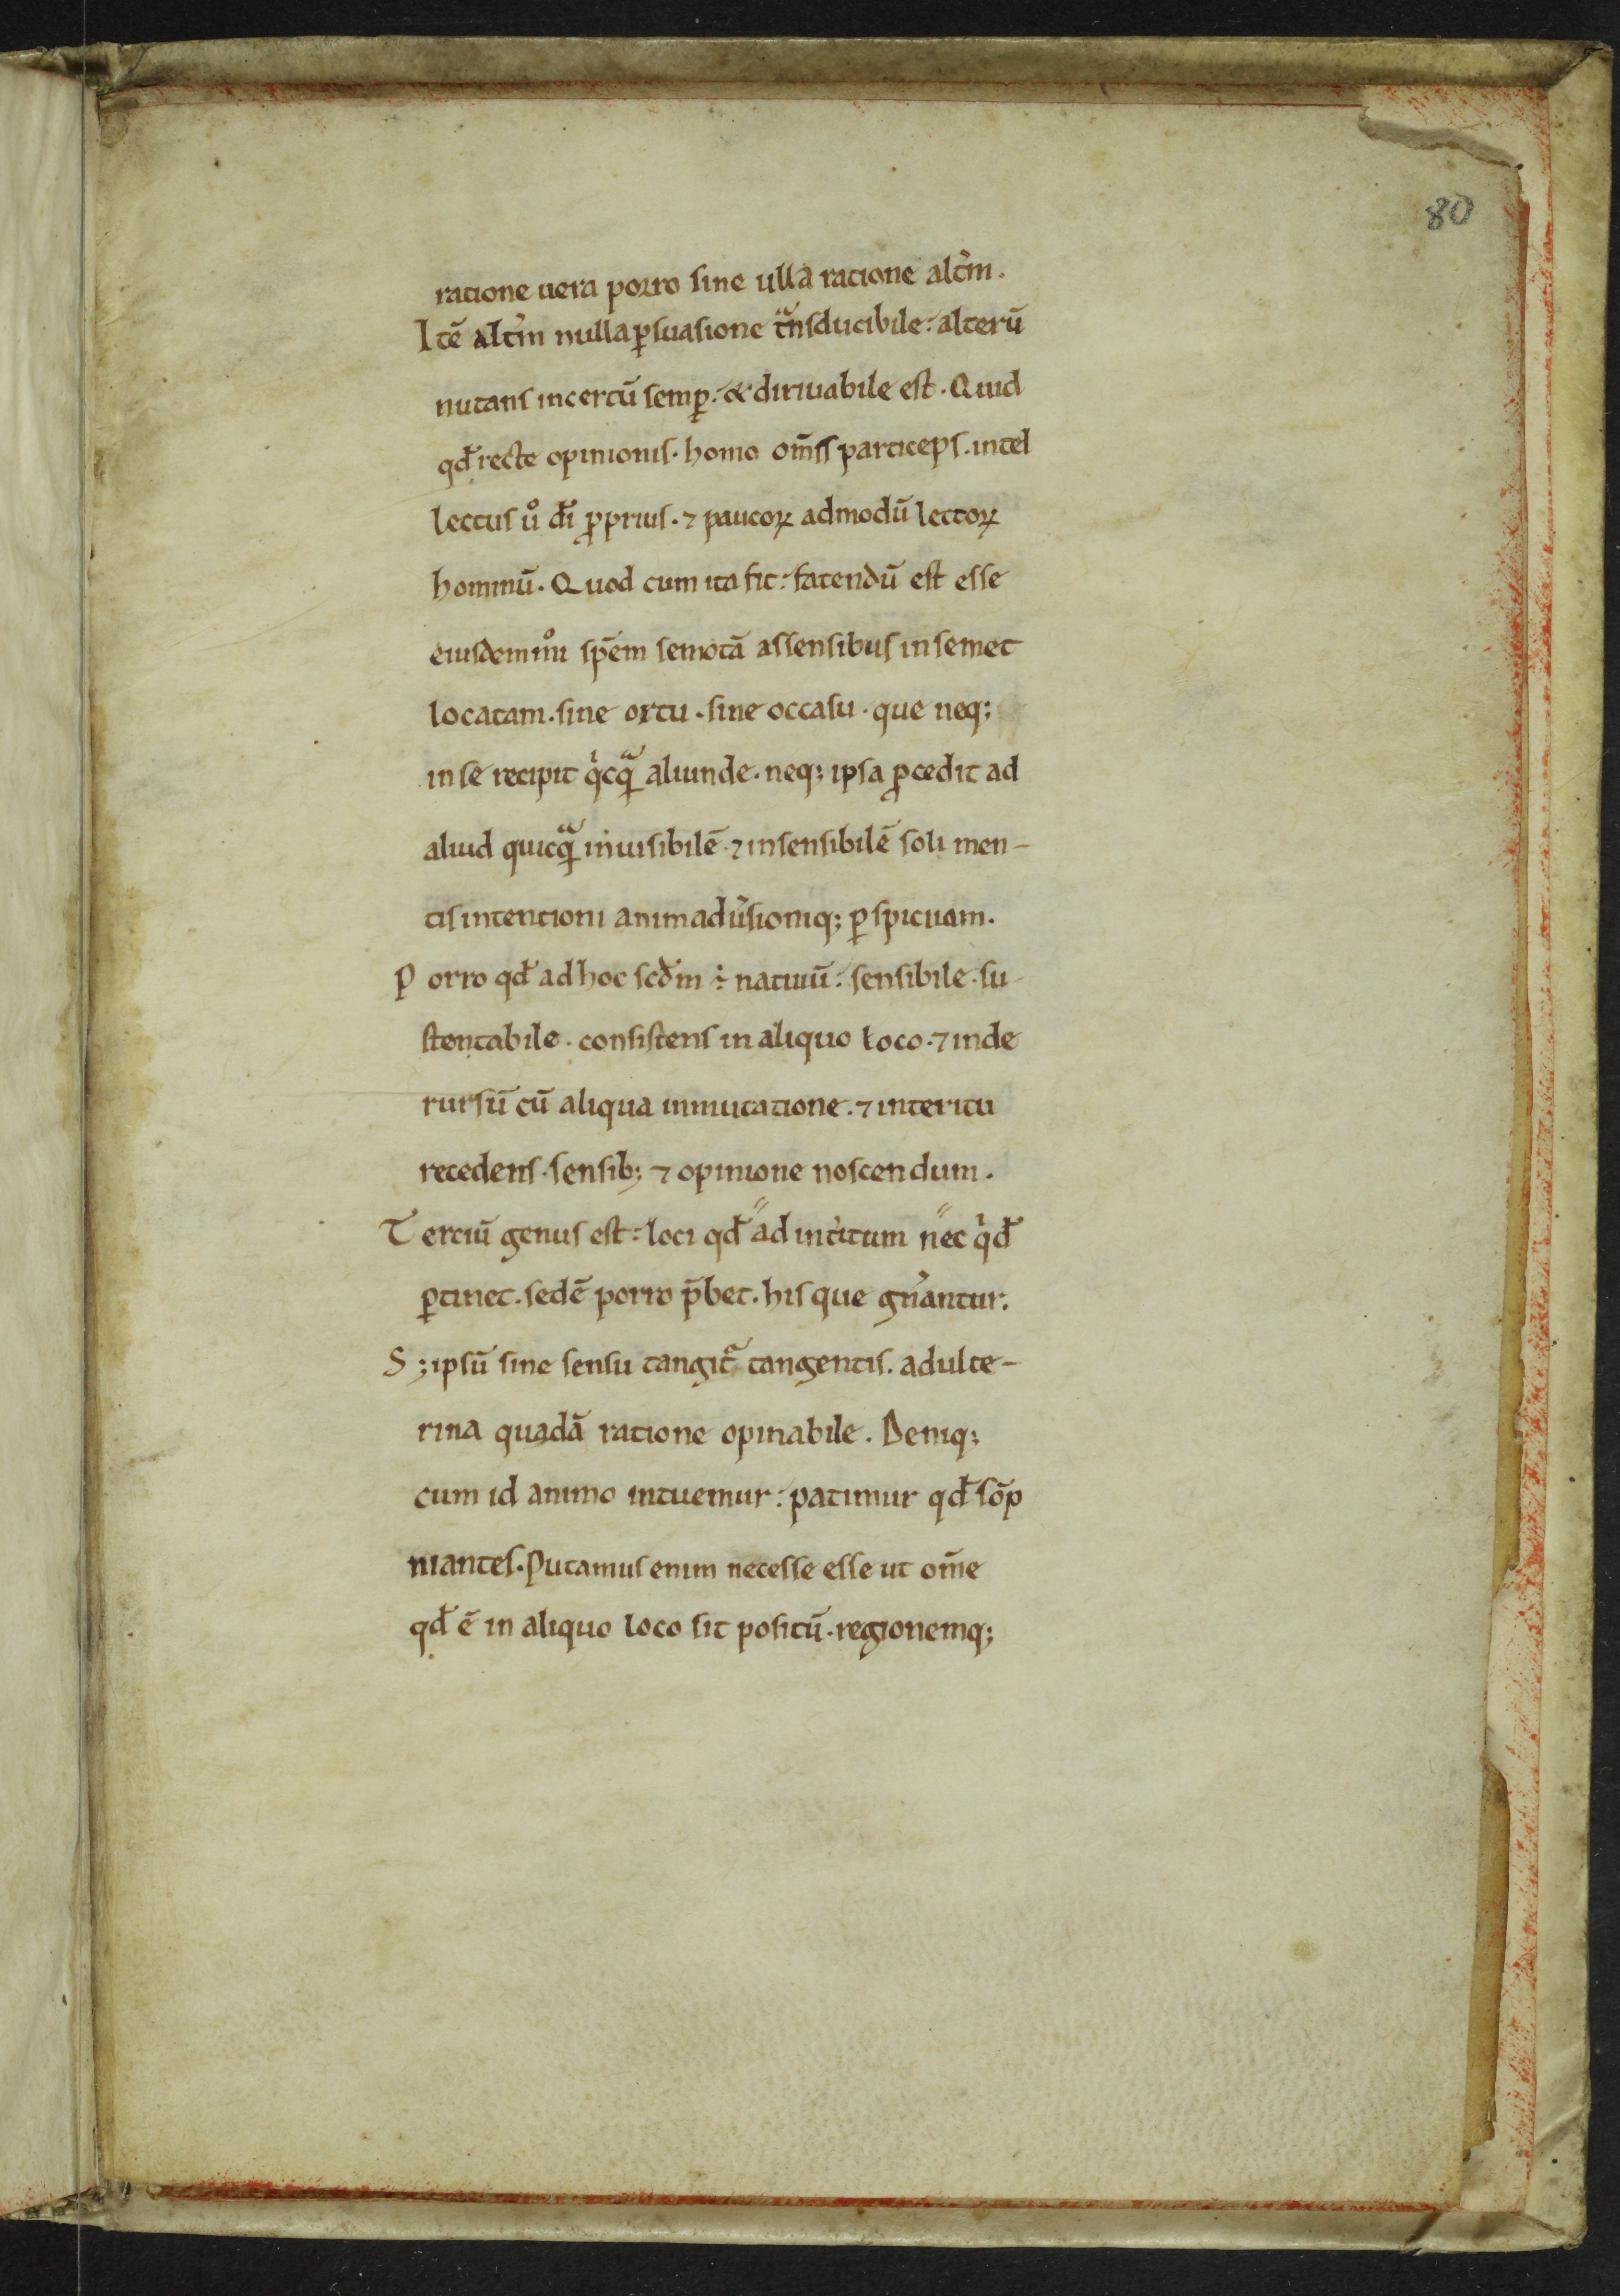 80
ratione uera porro sine ulla ratione alt̉m.
Itē alt̉m nulla ꝑsuasione tͣnsducibile: alterū
nutans incertū semꝑ: & diriuabile est. Quid
qđ recte opinionis. homo om̄ss particeps. intel
lectus ů dī ꝓprius. ⁊ paucoꝝ admodū lectoꝝ
hominū. Quod cum ita sit: fatendū est esse
eiusdemmo̊i sp̄em semotā assensibus insemet
locatam. sine ortu. sine occasu. que neq;
inse recipit qͥcqͣ̄ aliunde. neq; ipsa ꝓcedit ad
aliud quicqͣ̄ inuisibilē. ⁊ insensibilē soli men-
tis intentioni animadu̓sioniq; ꝑspicuam.
Porro qđ ad hoc scđm ÷ natiuū: sensibile. su-
stentabile. consistens in aliquo loco. ⁊ inde
rursū cū aliqua inmutatione. ⁊ interitu
recedens. sensib; ⁊ opinione noscendum.
Terciū genus est: loci qđ ad int̉itum nec qͥđ
ꝑtinet. sedē porro p̄bet. his que gn̉antur.
S; ipsū sine sensu tangitͣ tangentis. adulte-
rina quadā ratione opinabile. Deniq;
cum id animo intuemur: patimur qđ sōp
niantes. Putamus enim necesse esse ut om̄e
qđ ē in aliquo loco sit positū. regionemq;